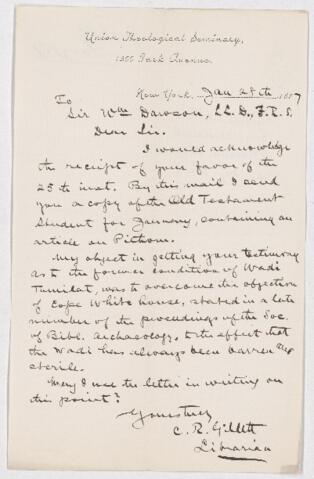 Union Theological Seminary,
1200 Park Avenue.
New York, Jan 28th 1887
To
Sir Wm Dawson, LL.D., F.R.S.
Dear Sir.
I would acknowledge
the receipt of your favor of the
25th inst. By this mail I send
you a copy of the Old Testament
Student for January, containing an
article on Pithom.
My object in getting your testimony
as to the former condition of Wadi
Tumilat, was to overcome the objection
of Cope Whitehouse, stated in a late
number of the proceedings of the Soc.
of Bibl. Archaeology, to the effect that
the Wadi has always been barren and
sterile.
May I use the letter in writing on
this point?
Yours truly
C. R. Gillett
Librarian